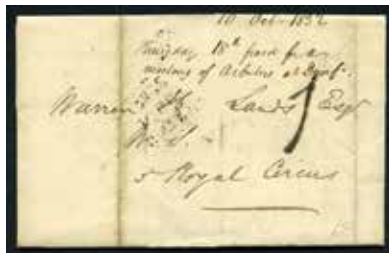 10 Oct. 1832
Thursday 18th fixed for
meeting of Arbiters at
Warren H. Sands Esqr
W. S.
5 Royal Circus